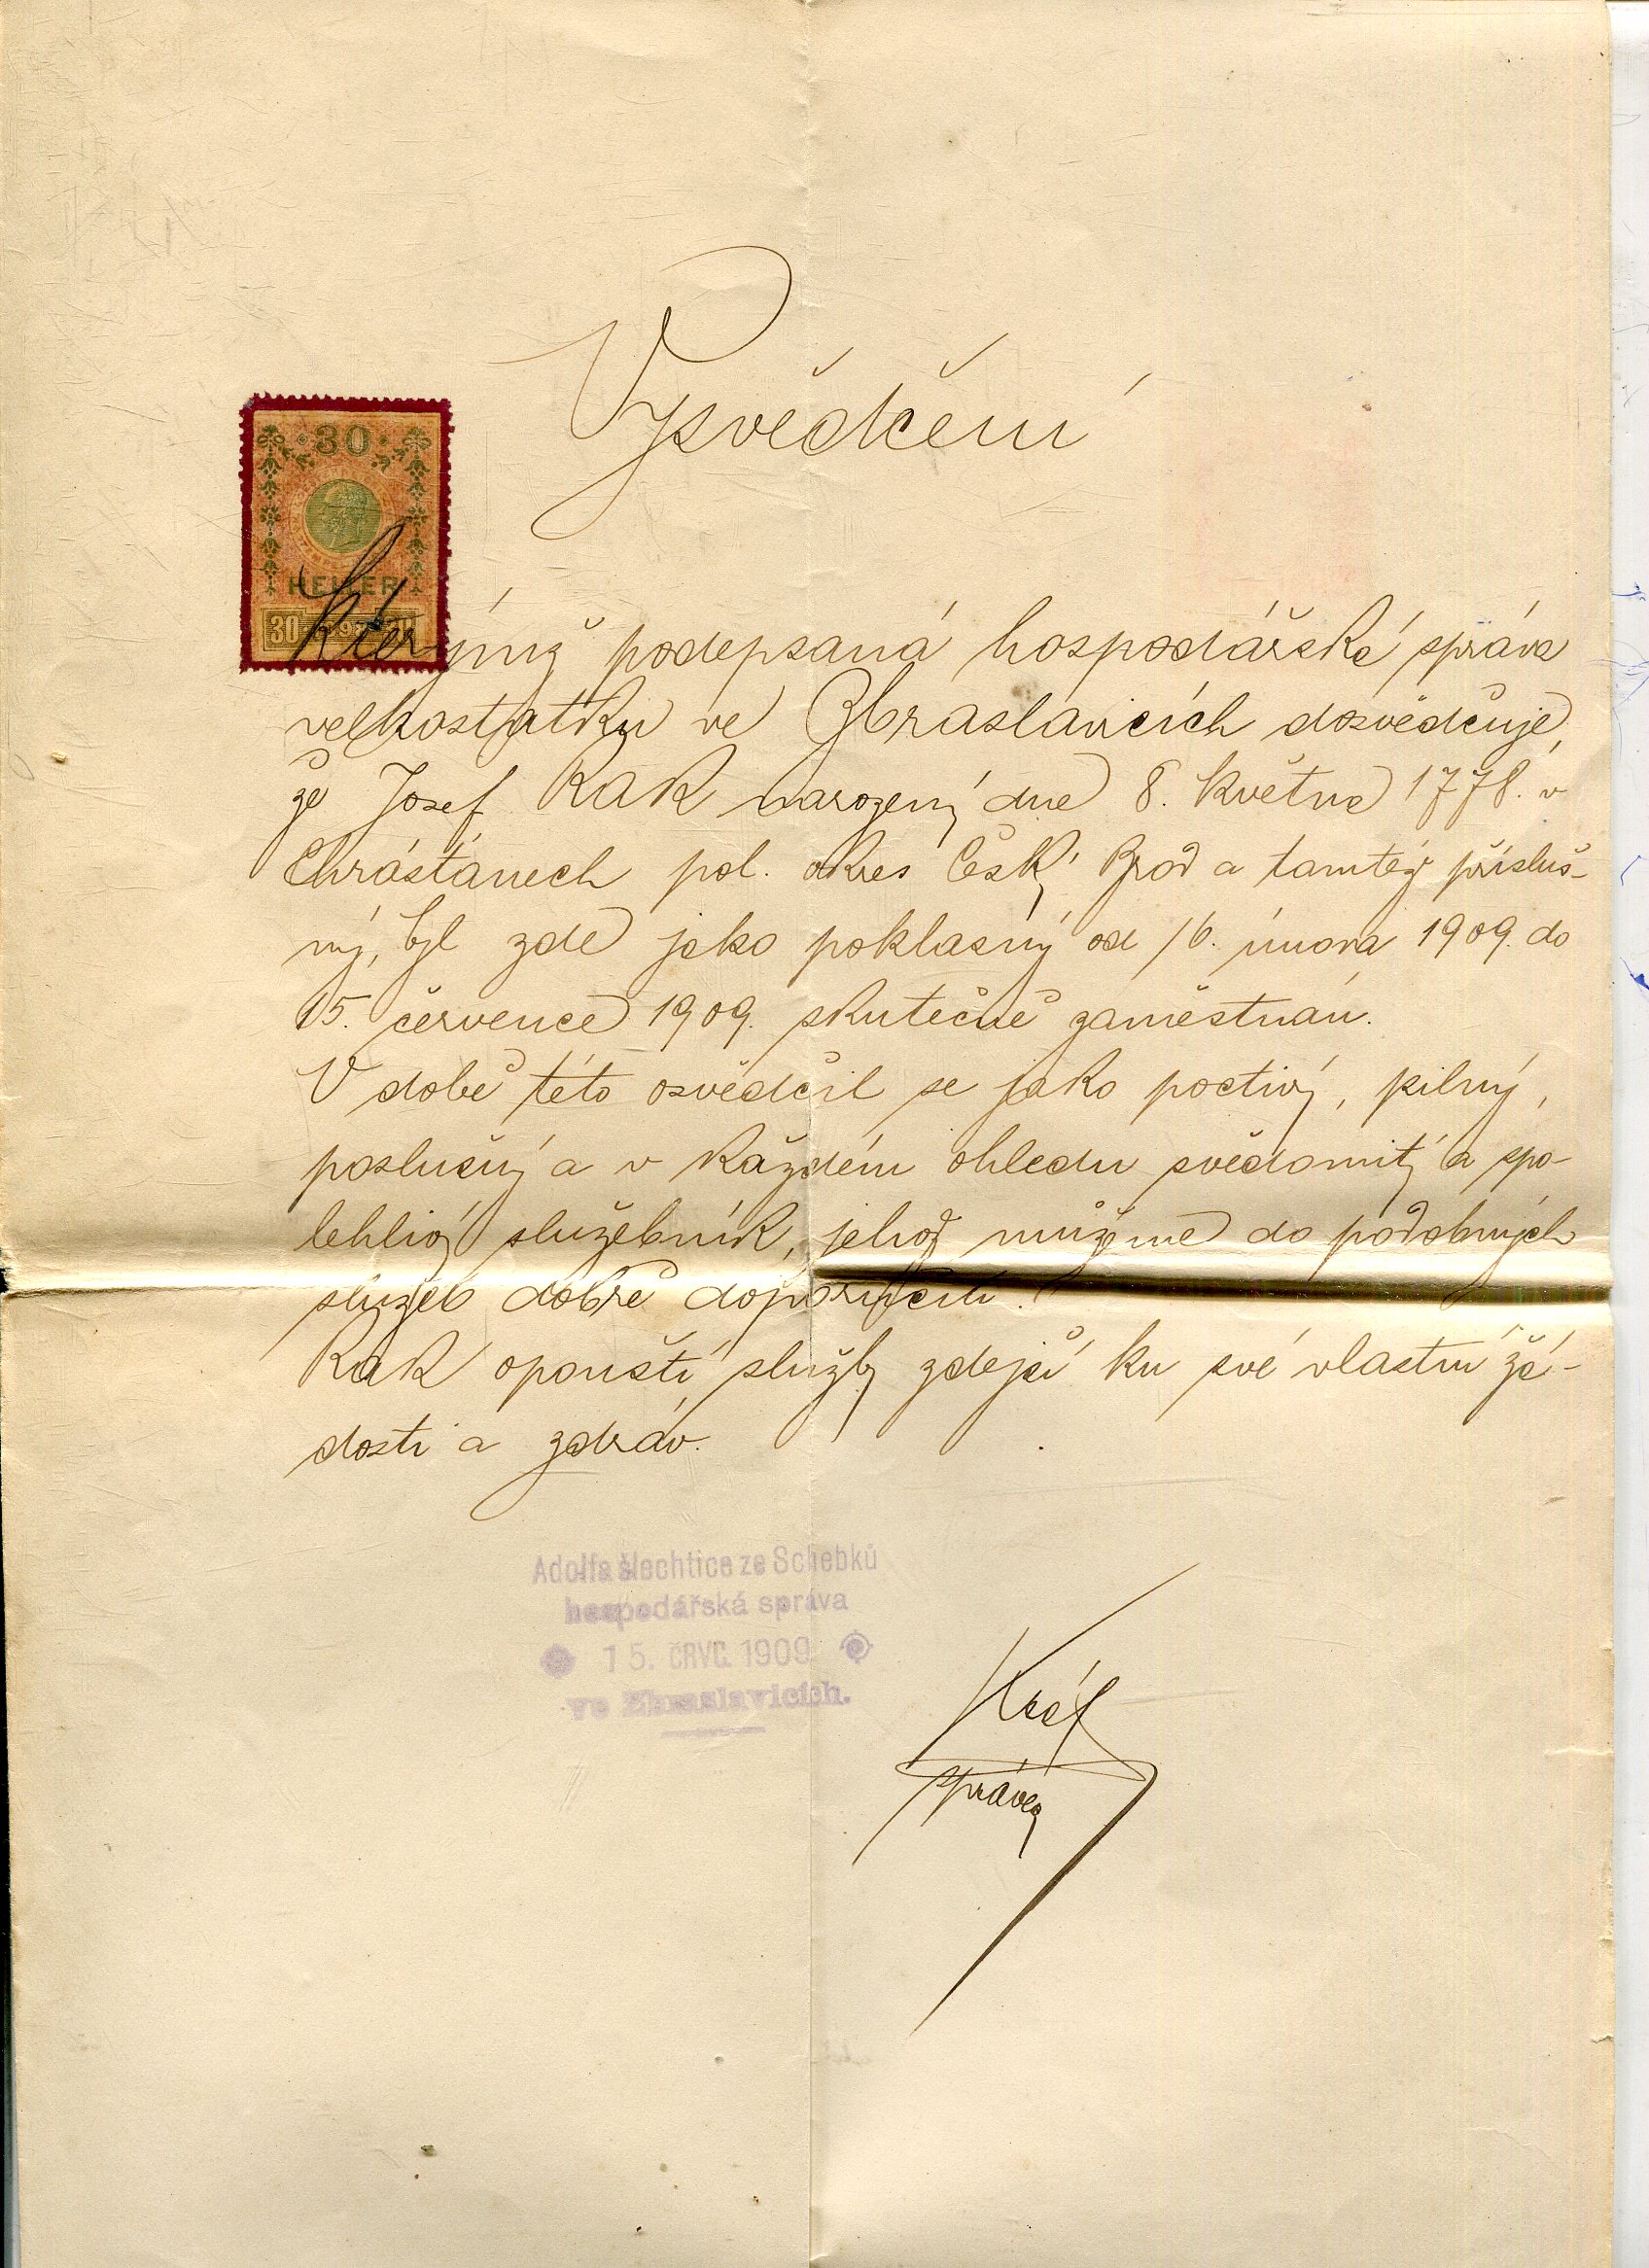 Vysvědčení
30
HELLER
30
kterýmž podepsaná hospodářská správa
velkostatku ve Zbraslavicích dosvědčuje,
že Josef Rak narozený dne 8. května 1778. v
Chrášťanech pol. okres Český Brod a tamtéž přísluš-
ný, byl zde jako poklasný od 16. února 1909. do
15. července 1909. skutečně zaměstnán.
V době této osvědčil se jako poctivý, pilný,
poslušný a v každém ohledu svědomitý a spo-
lehlivý služebník, jehož můžeme do podobných
služeb dobře doporučiti.
Rak opouští služby zdejší ku své vlastní žá-
dosti a zdráv.
Adolfa šlechtice ze Schebků
hospodářská správa
15. ČRVC. 1909
ve Zbraslavicích.
správce